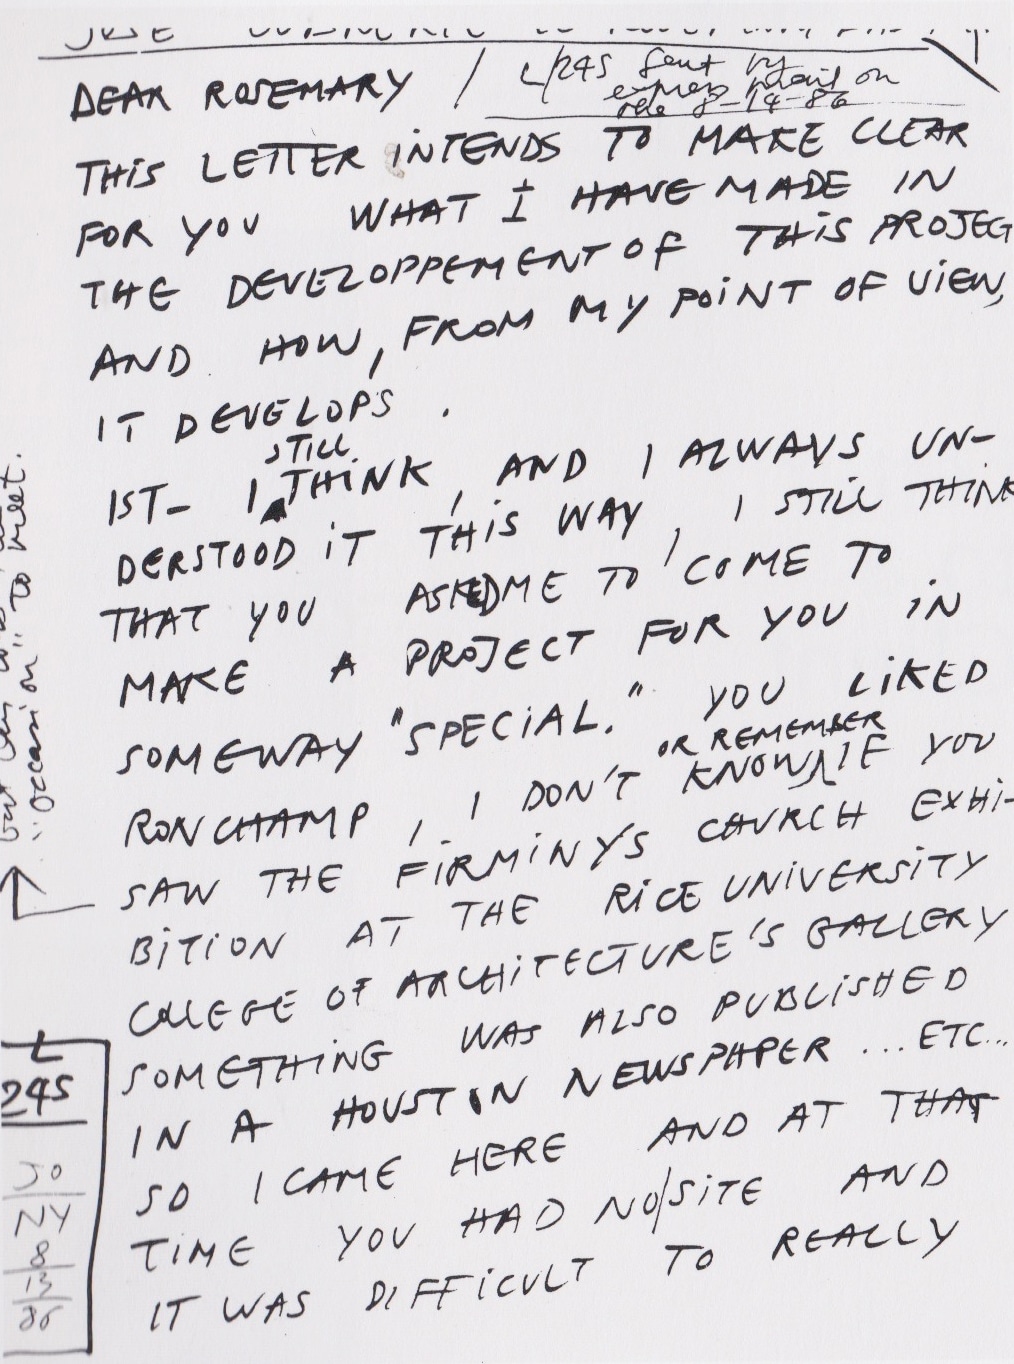 DEAR ROSEMARY /
L/245 sent by
express mail on
8-14-86
THIS LETTER INTENDS TO MAKE CLEAR
FOR YOU WHAT I HAVE MADE IN
THE DEVELOPPEMENT OF THIS PROJECT
AND HOW, FROM MY POINT OF VIEW,
IT DEVELOPS.
STILL
1ST- I THINK, AND I ALWAYS UN-
DERSTOOD IT THIS WAY, I STILL THINK
THAT YOU ASKED ME TO COME TO
MAKE A PROJECT FOR YOU IN
SOMEWAY "SPECIAL." YOU LIKED
OR REMEMBER
RONCHAMP, I DON'T KNOW IF YOU
SAW THE FIRMINY'S CHURCH EXHI-
BITION AT THE RICE UNIVERSITY
COLLEGE OF ARCHITECTURE'S GALLERY
SOMETHING WAS ALSO PUBLISHED
IN A HOUSTON NEWSPAPER ... ETC...
SO I CAME HERE AND AT THAT
TIME YOU HAD NO/SITE AND
IT WAS DIFFICULT TO REALLY
"occasion" to meet.
L
245
JO
NY
8
13
86